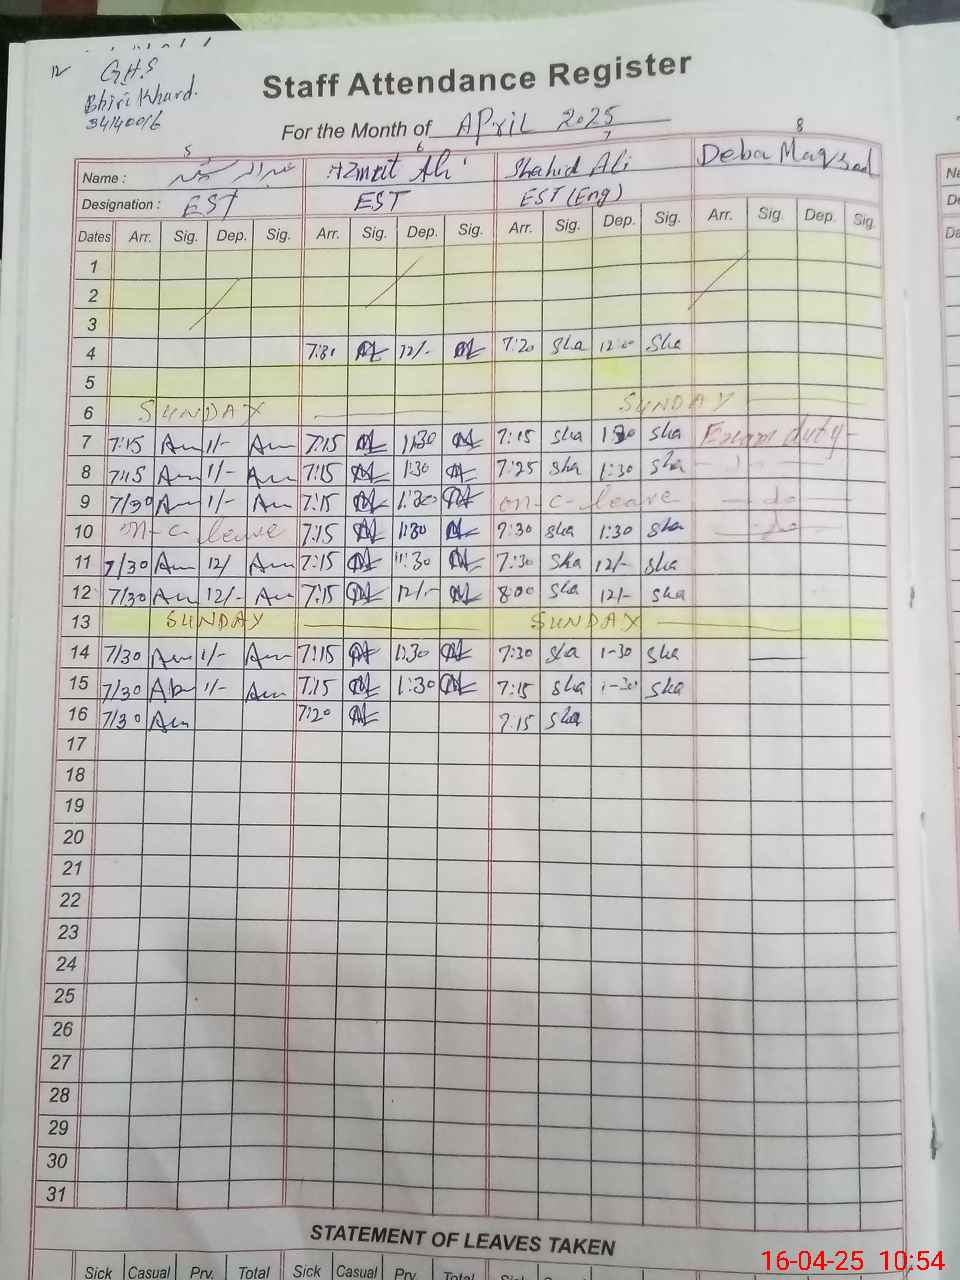 12 G.H.S
Bhiri Khard.
34140016
Staff Attendance Register
For the Month of APril 2025
5 6 7 8
Name : Azmat Ali Shahid Ali Deba Maqsad
Designation : EST EST EST (Eng)
Dates Arr. Sig. Dep. Sig. Arr. Sig. Dep. Sig. Arr. Sig. Dep. Sig. Arr. Sig. Dep. Sig.
1
2
3
4 7:30 12/- 7:20 sha 12:00 sha
5
6 SUNDAY SUNDAY
7 7:15 Am 1/- Am 7:15 1:30 7:15 sha 1:30 sha Exam duty
8 7:15 Am 1/- Am 7:15 1:30 7:25 sha 1:30 sha
9 7/30 Am 1/- Am 7:15 1:30 on-c-leave do
10 on-c-leave 7:15 1:30 7:30 sha 1:30 sha do
11 7/30 Am 12/ Am 7:15 11:30 7:30 sha 12/- sha
12 7/30 Am 12/- Am 7:15 12/- 8:00 sha 12/- sha
13 SUNDAY SUNDAY
14 7/30 Am 1/- Am 7:15 1:30 7:30 sha 1-30 sha
15 7/30 Am 1/- Am 7:15 1:30 7:15 sha 1-30 sha
16 7/30 Am 7:20 7:15 sha
17
18
19
20
21
22
23
24
25
26
27
28
29
30
31
STATEMENT OF LEAVES TAKEN
Sick Casual Prv. Total Sick Casual Prv. Total Sick Casual
16-04-25 10:54